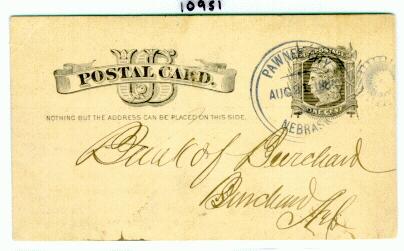 10951
US
POSTAL CARD.
NOTHING BUT THE ADDRESS CAN BE PLACED ON THIS SIDE.
PAWNEE CITY
AUG
NEBRASKA
U.S. POSTAGE
ONE CENT
Bank of Burchard
Burchard
Neb